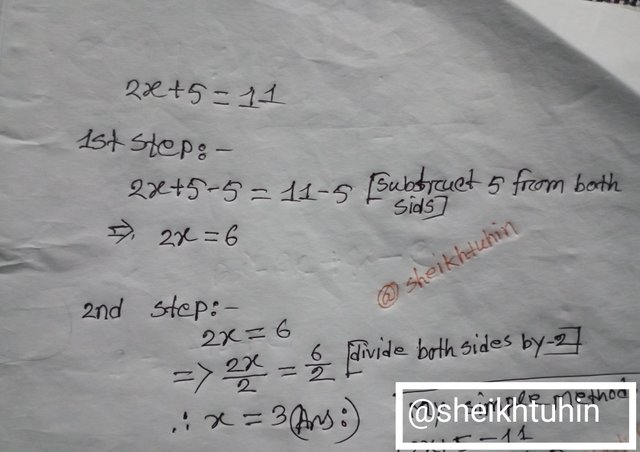 2x+5=11
1st step:-
2x+5-5 = 11-5 [Subtruct 5 from both
sids]
⇒ 2x=6
@sheikhtuhin
2nd step:-
2x=6
=> 2x/2 = 6/2 [divide both sides by-2]
∴ x = 3(Ans:)
simple method
@sheikhtuhin
5=11